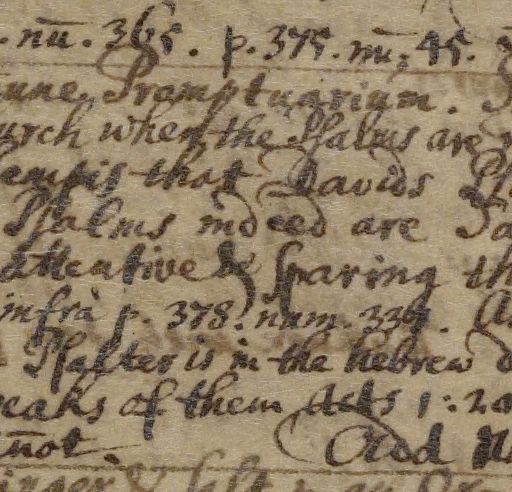 . nū. 365. p. 375. nū. 45.
une Promptuarium.
urch when the Psalms are
tempts that Davids
Psalms indeed are
attentive & sparing th
infrà p. 378. num. 339.
Psalter is in the hebrew
peaks of them Acts 1:20
nnot Add